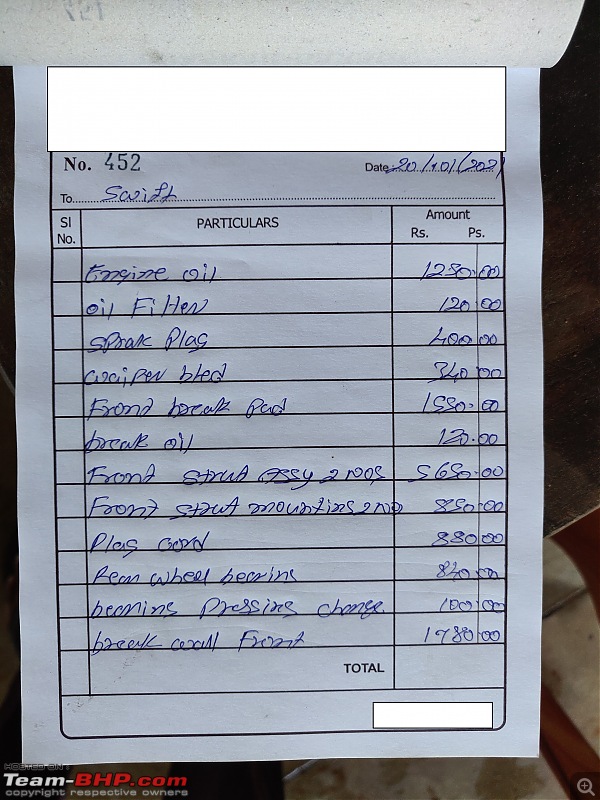 No. 452 Date: 20/10/2021
To Swift
Sl No. PARTICULARS Amount Rs. Ps.
Engine oil 1250.00
oil Filter 120.00
Sprak Plag 400.00
waiper bled 340.00
Front break Pad 1550.00
break oil 120.00
Front strut assy 2 nos 5650.00
Front strut mounting 2 no 850.00
Plag cord 880.00
Rear wheel bearing 840.00
bearing Pressing charge 100.00
break Front 1780.00
TOTAL
HOSTED ON :
Team-BHP.com
copyright respective owners